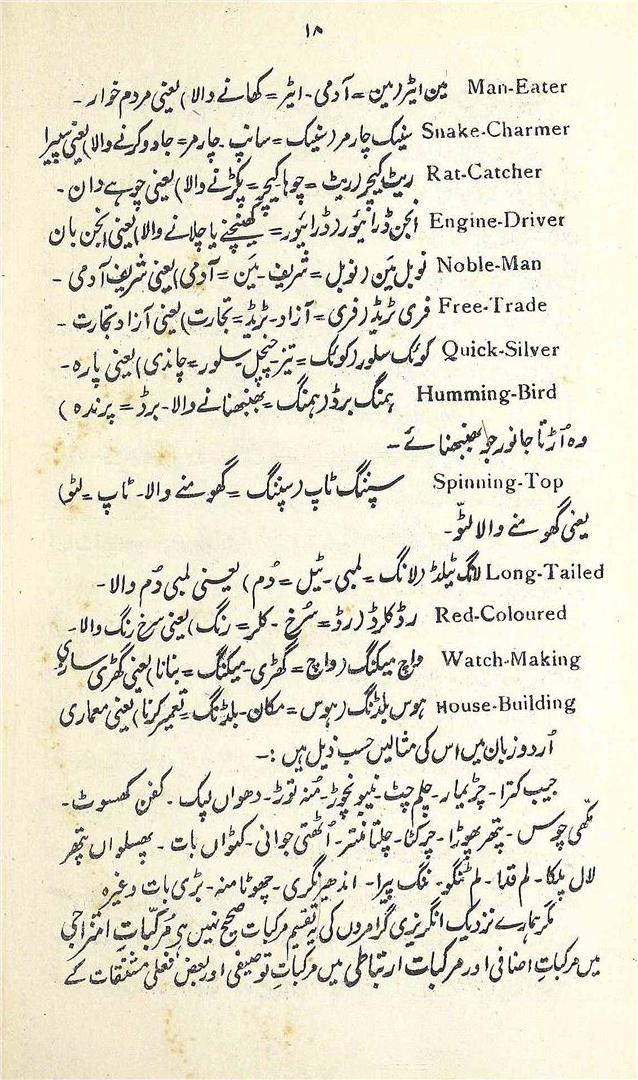 ۱۸
Man-Eater مین ایٹر (مین = آدمی - ایٹر = کھانے والا) یعنی مردم خوار -
Snake-Charmer سنیک چارمر (سنیک = سانپ - چارمر = جادو کرنے والا) یعنی سپیرا
Rat-Catcher ریٹ کیچر (ریٹ = چوہا کیچر = پکڑنے والا) یعنی چوہے دان -
Engine-Driver انجن ڈرائیور (ڈرائیور = کھینچنے یا چلانے والا) یعنی انجن بان
Noble-Man نوبل مَین (نوبل = شریف - مَین = آدمی) یعنی شریف آدمی -
Free-Trade فری ٹریڈ (فری = آزاد - ٹریڈ = تجارت) یعنی آزاد تجارت -
Quick-Silver کوئک سلور (کوئک = تیز - چنچل سلور = چاندی) یعنی پارہ -
Humming-Bird ہمنگ برڈ (ہمنگ = بھنبھنانے والا - برڈ = پرندہ)
وہ اُڑتا جانور جو بھنبھنائے -
Spinning-Top سپننگ ٹاپ (سپننگ = گھومنے والا - ٹاپ = لٹو)
یعنی گھومنے والا لٹّو -
Long-Tailed لانگ ٹیلڈ (لانگ = لمبی - ٹیل = دُم) یعنی لمبی دُم والا -
Red-Coloured رڈ کلرڈ (رڈ = سُرخ - کلر = رنگ) یعنی سرخ رنگ والا -
Watch-Making واچ میکنگ (واچ = گھڑی - میکنگ = بنانا) یعنی گھڑی سازی
House-Building ہوس بلڈنگ (ہوس = مکان - بلڈنگ = تعمیر کرنا) یعنی معماری
اُردو زبان میں اس کی مثالیں حسب ذیل ہیں :-
جیب کترا - چڑیمار - چلم چٹ - نیبو نچوڑ - مُنہ توڑ - دھواں لپک - کفن کھسوٹ -
مکّھی چوس - پتھر پھوڑا - چرکٹا - چلتا منتر - اُٹھتی جوانی - کڑواں بات - پھسلواں پتھر
لال پلکا - لم قدا - لم ٹنگو - ننگ پیرا - اندھیر نگری - چھوٹا منہ - بڑی بات وغیرہ
مگر ہمارے نزدیک انگریزی گرامروں کی یہ تقسیم مرکبات صحیح نہیں ہر مُرکّباتِ امتزاجی
میں مرکباتِ اضافی اور مرکبات ارتباطی میں مرکباتِ توصیفی اور بعض فعلی مشتقات کے